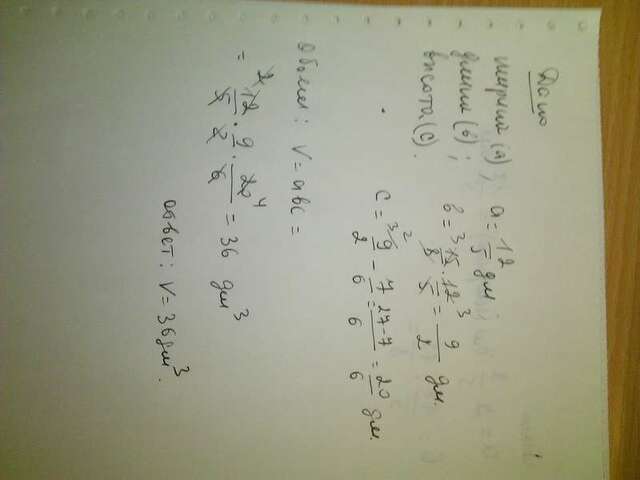 Дано
ширина (a); a = 12/5 дм
длина (b); b = 15/8 · 12/5 = 9/2 дм.
высота (c). c = 9/2 - 7/6 = 27-7/6 = 20/6 дм.
Объем: V = abc =
= 12/5 · 9/2 · 20/6 = 36 дм³
ответ: V = 36 дм³.